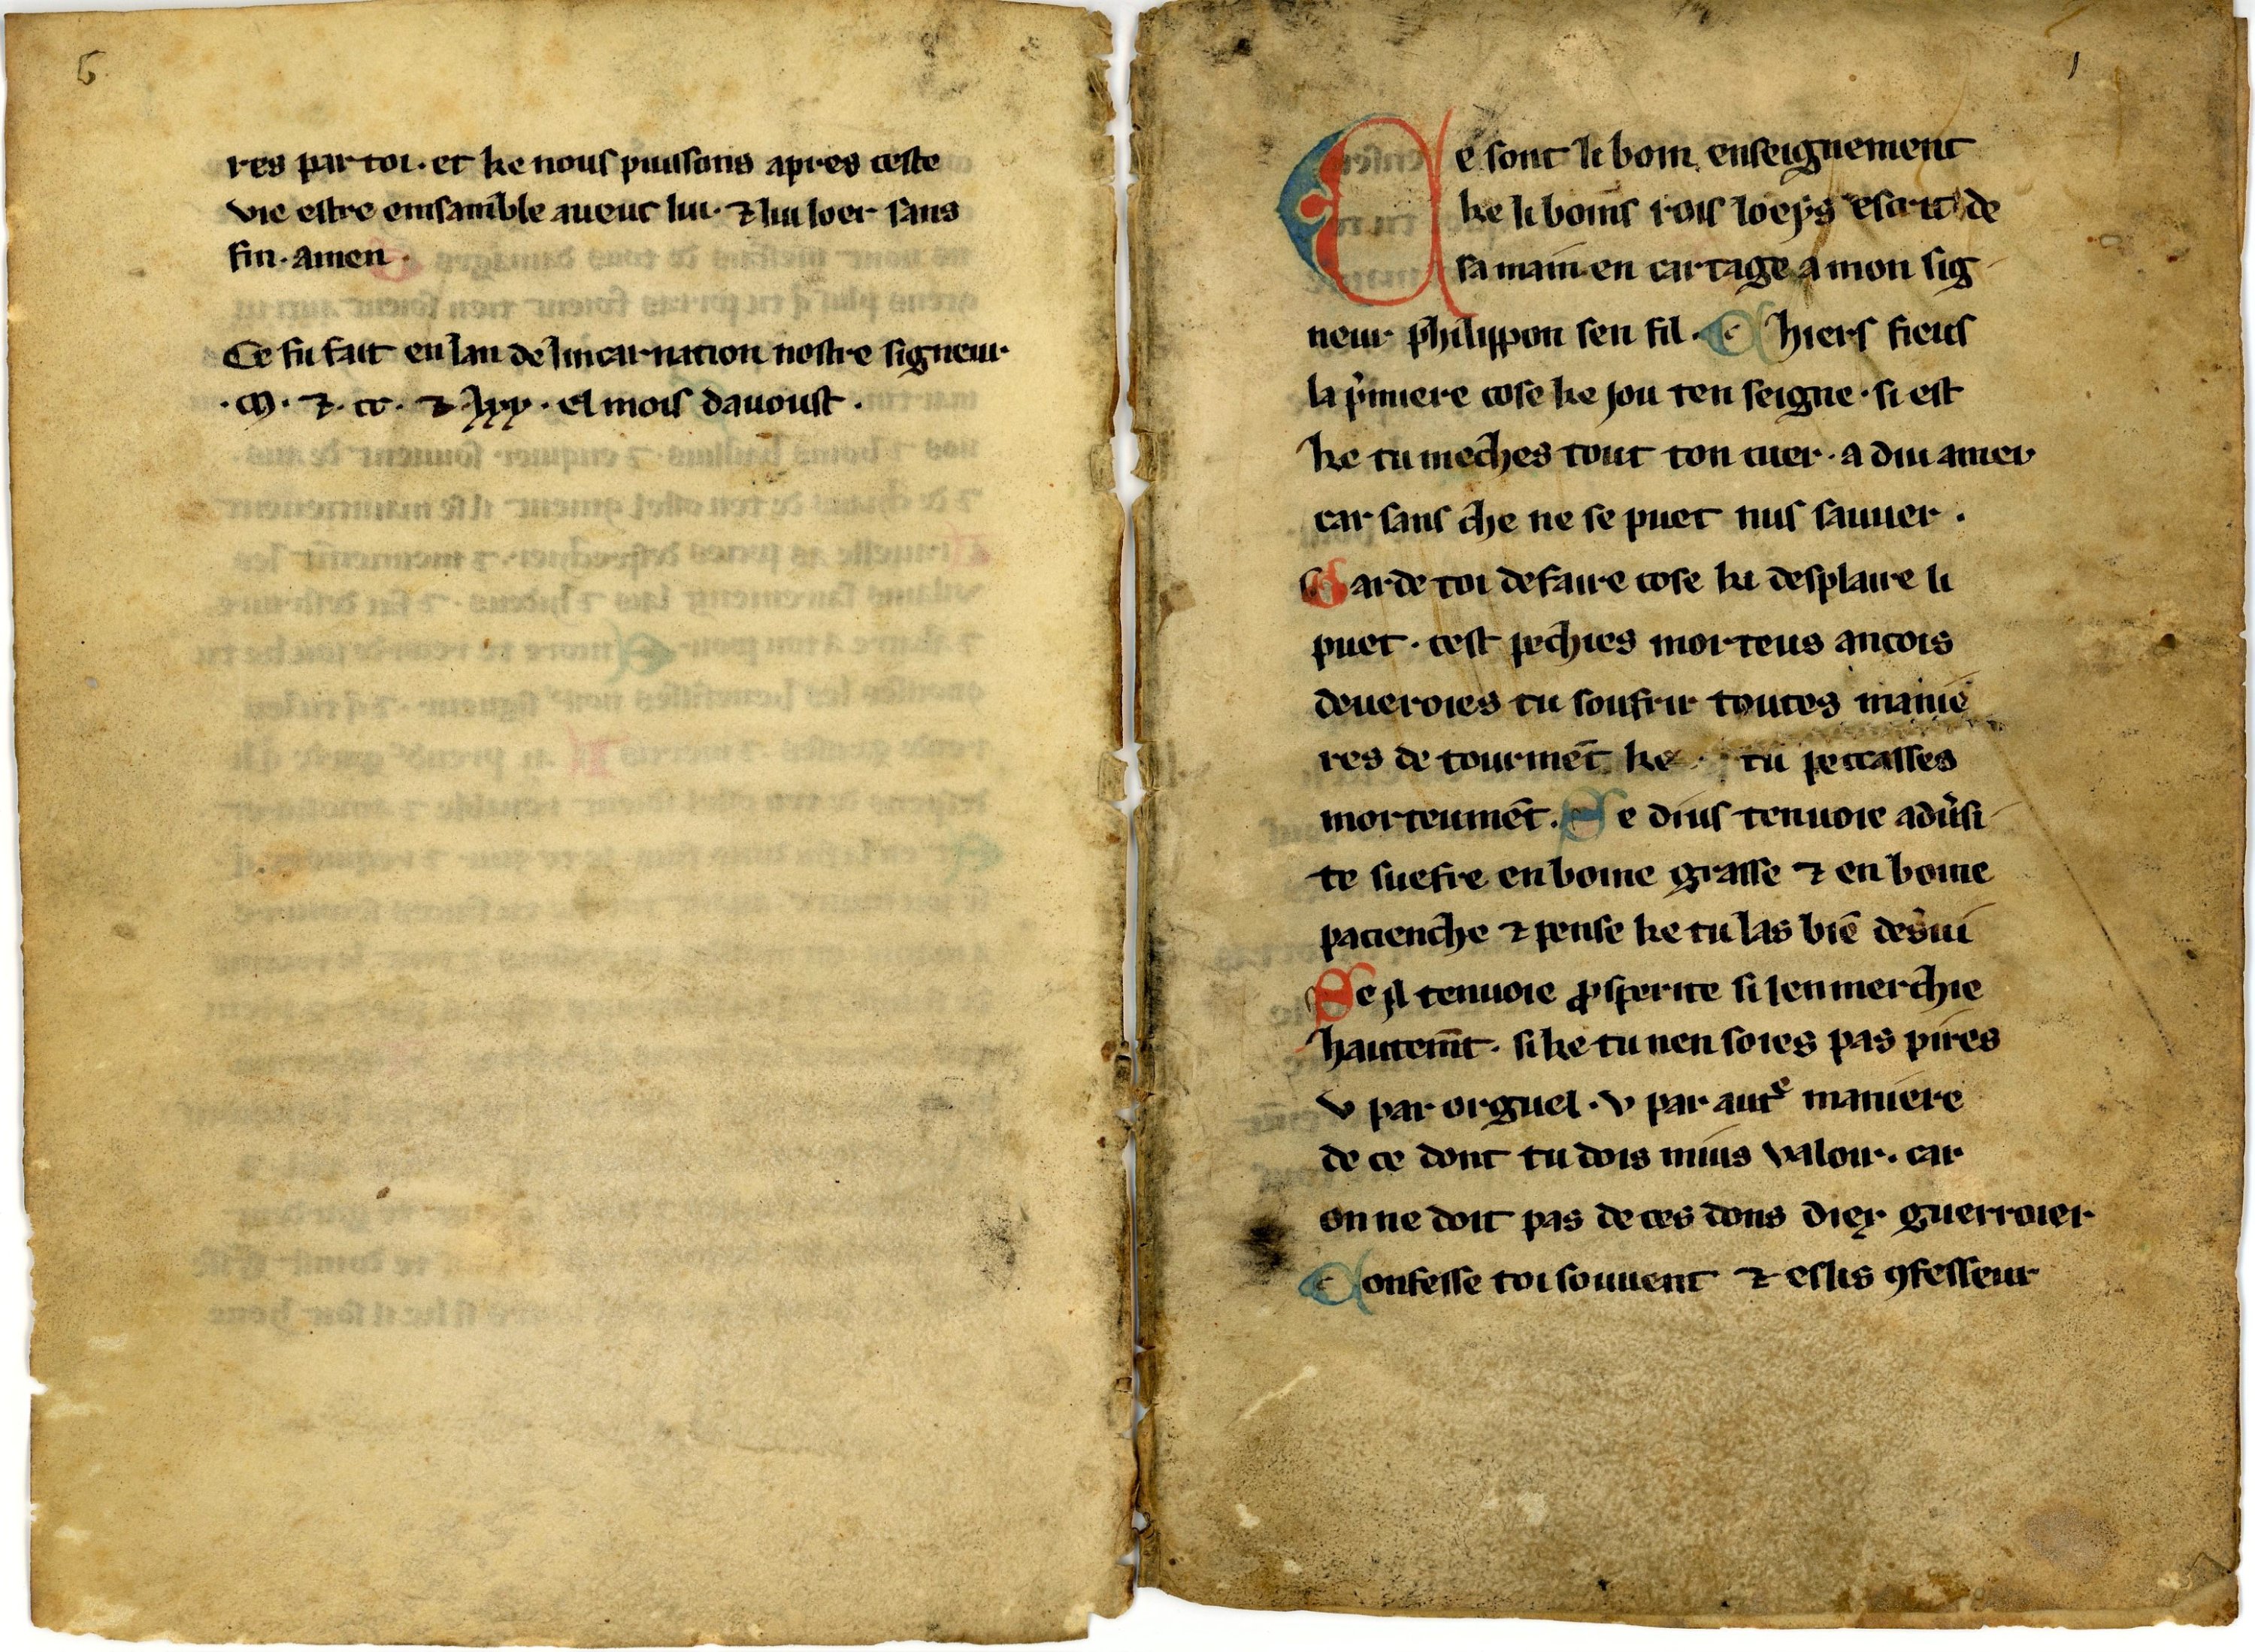 6
res par toi · et ke nous puissons apres ceste
vie estre emsamble aueuc lui · ⁊ lui loer sans
fin · amen ·
Ce fu fait en lan de lincarnation nostre signeur
· M · ⁊ · cc · ⁊ lxx · el mois dauoust ·
1
Ce sont li boin enseignement
ke li boins rois loeys escrit de
sa main en cartage a mon sig
neur phẽlippon sen fil · Chiers fieus
la pͥmiere cose ke jou tenseigne · si est
ke tu meches tout ton cuer · a diu amer
car sans che ne se puet nus sauuer ·
Garde toi de faire cose ki desplaire li
puet · cest pechies morteus ancois
deueroies tu soufrir toutes manie
res de tourmẽt ke tu peccasses
morteumẽt · Se dius tenuoie adũsi
te suefre en boine grasse ⁊ en boine
pacienche ⁊ pense ke tu las biẽ des̃ui
Se il tenuoie ꝓsperite si len merchie
hautem̃t · si ke tu nen soies pas pires
v par orguel · v par autͤ maniere
de ce dont tu dois mius valoir · car
on ne doit pas de ces dons diex guerroier
Confesse toi souuent ⁊ eslis ꝯfesseur